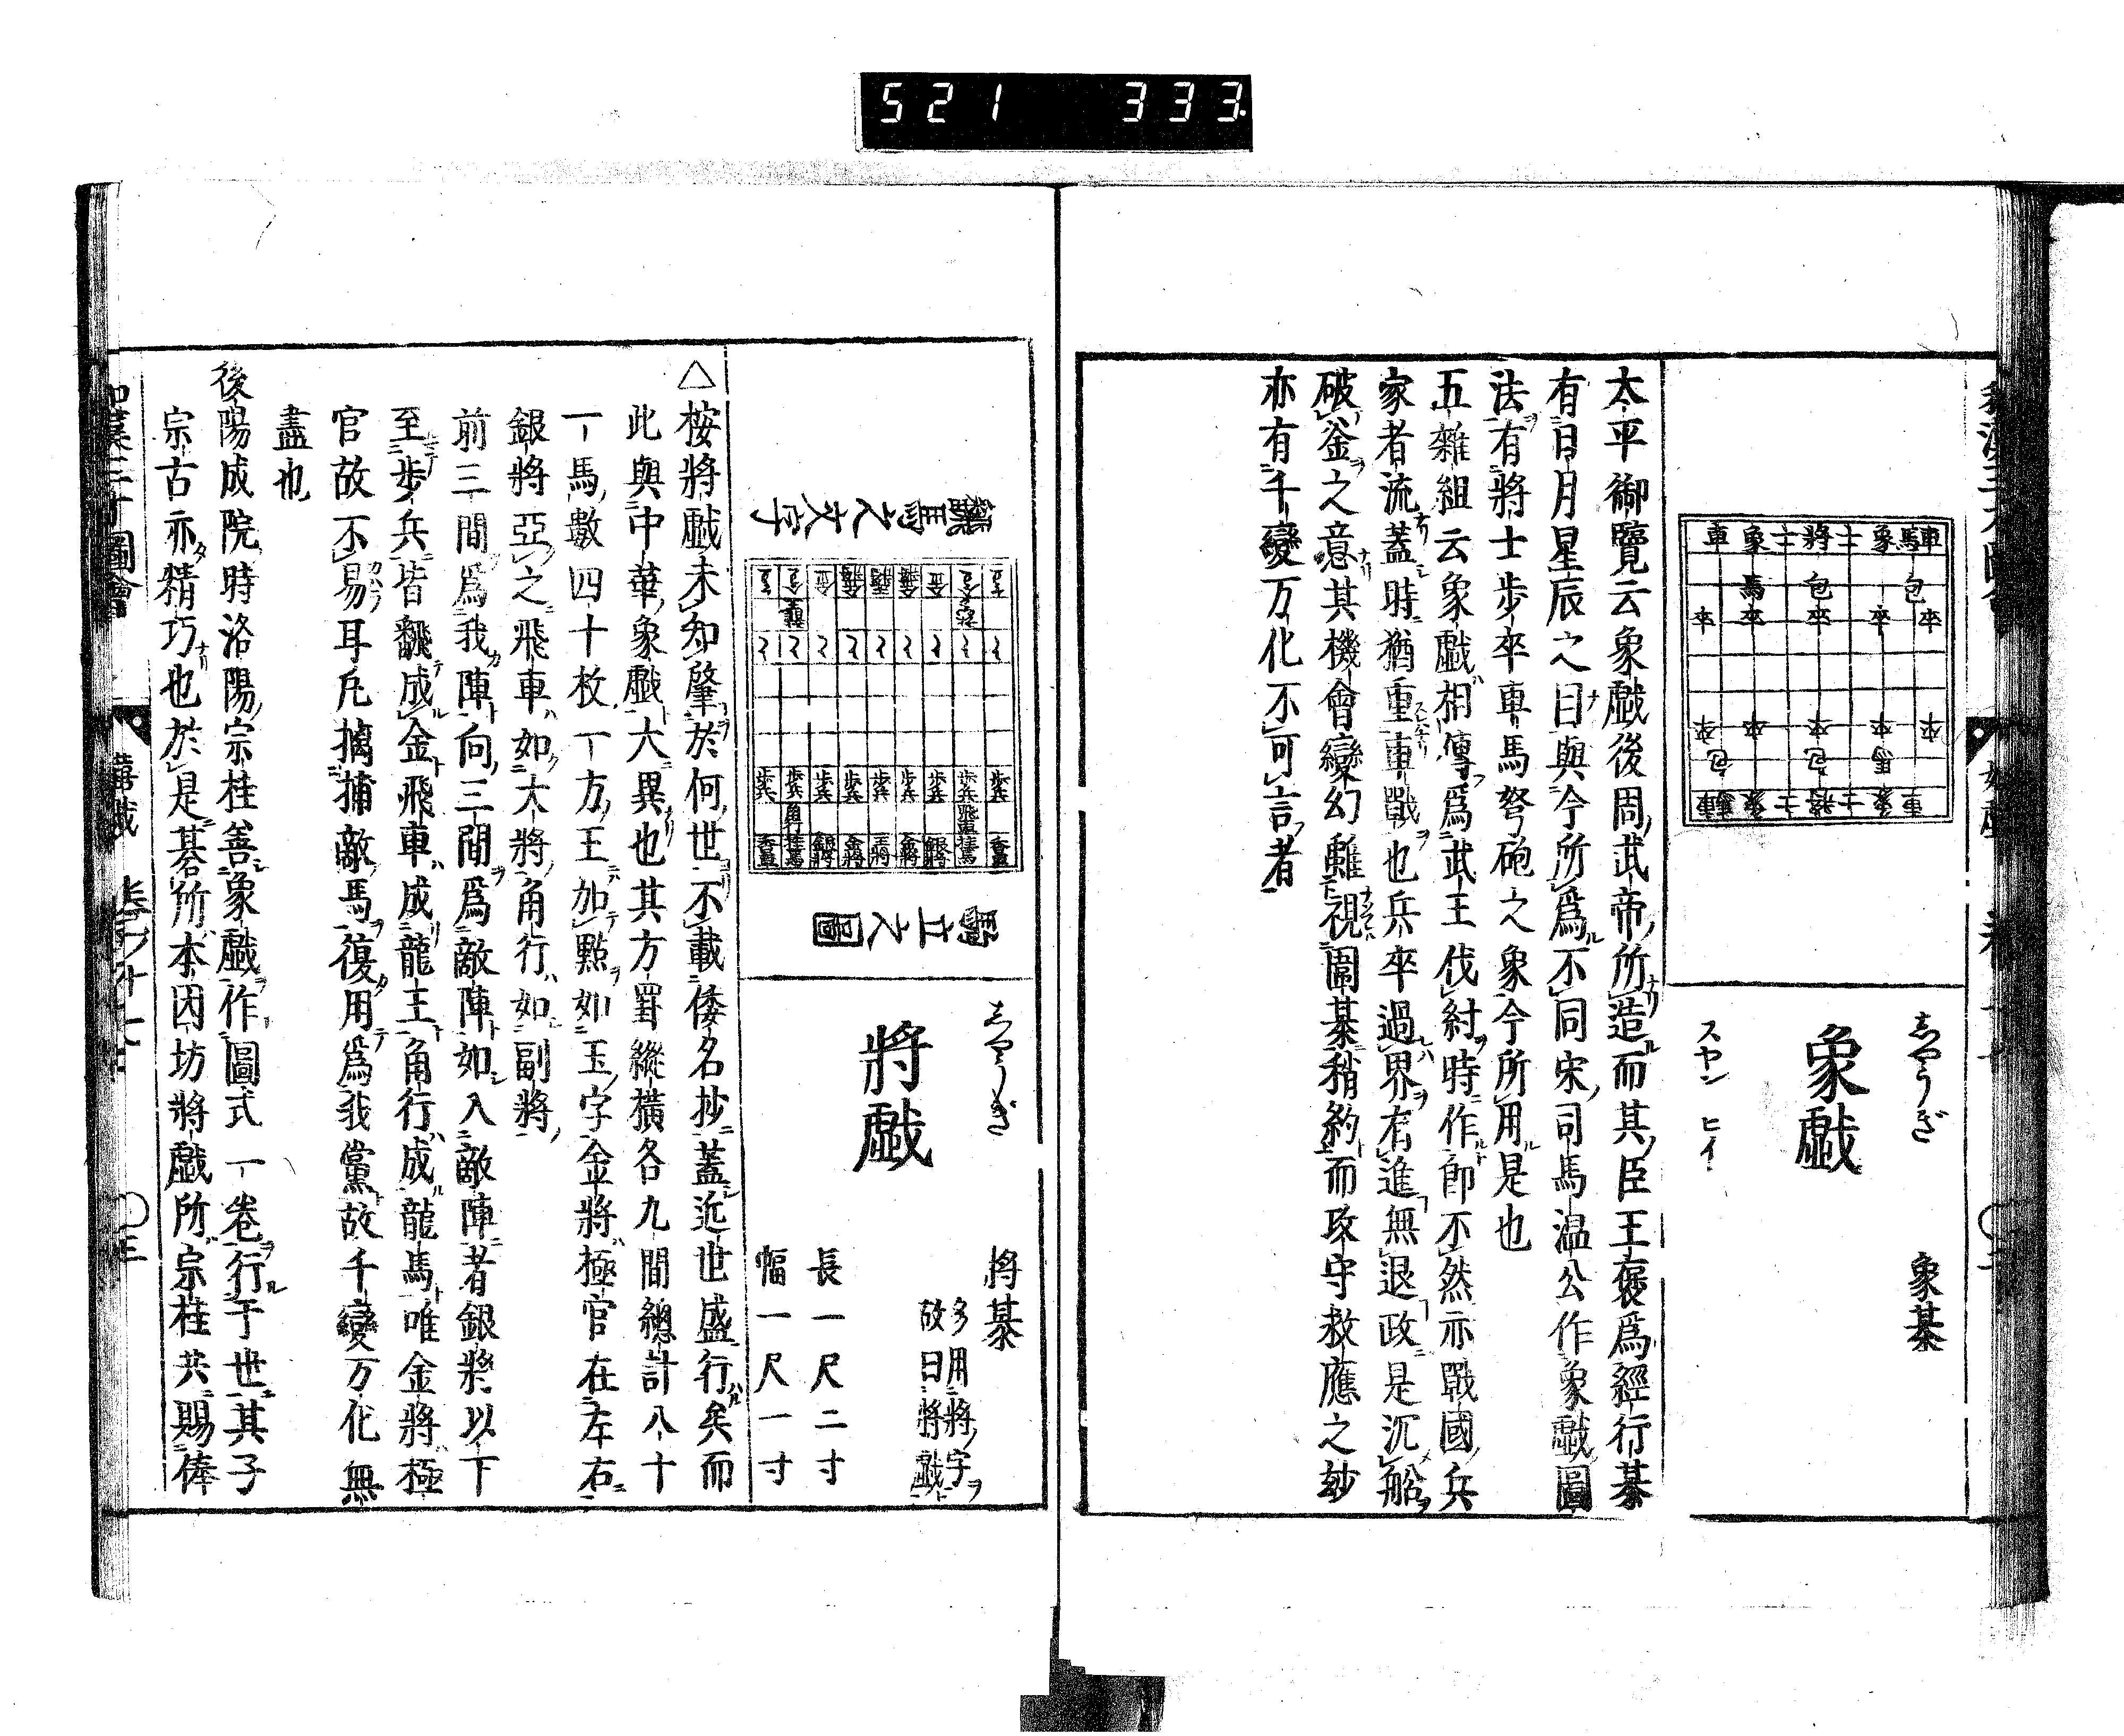 521 333
象棊
しやうぎ
象戲
スヤン ヒイ
車 象 士 將 士 象 馬 車
馬 包 包
卒 卒 卒 卒 卒
太平御覽云象戲後周武帝所造而其臣王褒爲經行棊
有日月星辰之日與今所爲不同宋司馬温公作象戲圖
法有將士步卒車馬弩砲之象今所用是也
五雜組云象戲相傳爲武王伐紂時作即不然亦戰國兵
家者流蓋時猶重車戰也兵卒過界有進無退政是沉船
破釜之意其機會變幻雖視圍棊稍約而攻守救應之妙
亦有千變万化不可言者
將棊 多用將字
故曰將戲
しやうぎ
將戲
長一尺二寸
幅一尺一寸
飜馬之文字
馬立之圖
步兵 步兵 步兵 步兵 步兵 步兵 步兵 步兵 步兵
角行 飛車
香車 桂馬 銀將 金將 王將 金將 銀將 桂馬 香車
△按將戲未知肇於何世不載倭名抄蓋近世盛行矣而
此與中華象戲大異也其方罫縱橫各九間總計八十
一馬數四十枚一方王加點如玉字金將極官在左右
銀將亞之飛車如大將角行如副將
前三間爲我陣向三間爲敵陣如入敵陣者銀將以下
至步兵皆飜成金飛車成龍王角行成龍馬唯金將極
官故不易耳凡擒捕敵馬復用爲我黨故千變万化無
盡也
後陽成院時洛陽宗桂善象戲作圖式一卷行于世其子
宗古亦精巧也於是碁所本因坊將戲所宗桂共賜俸
和漢三才圖會 嬉戲 卷ノ十七 〇三